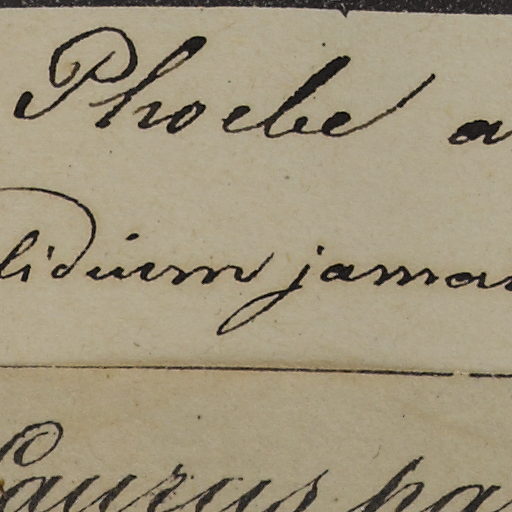 Phoebe a
lidium jamai
Laurus pa